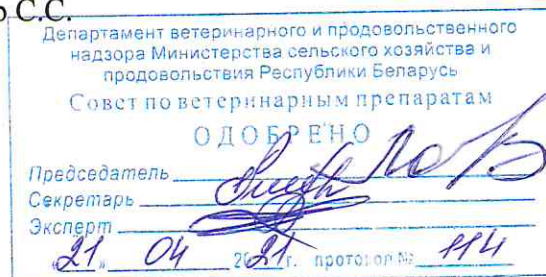 С.С.
Департамент ветеринарного и продовольственного
надзора Министерства сельского хозяйства и
продовольствия Республики Беларусь
Совет по ветеринарным препаратам
ОДОБРЕНО
Председатель
Секретарь
Эксперт
"21" 04 2021г. протокол № 114